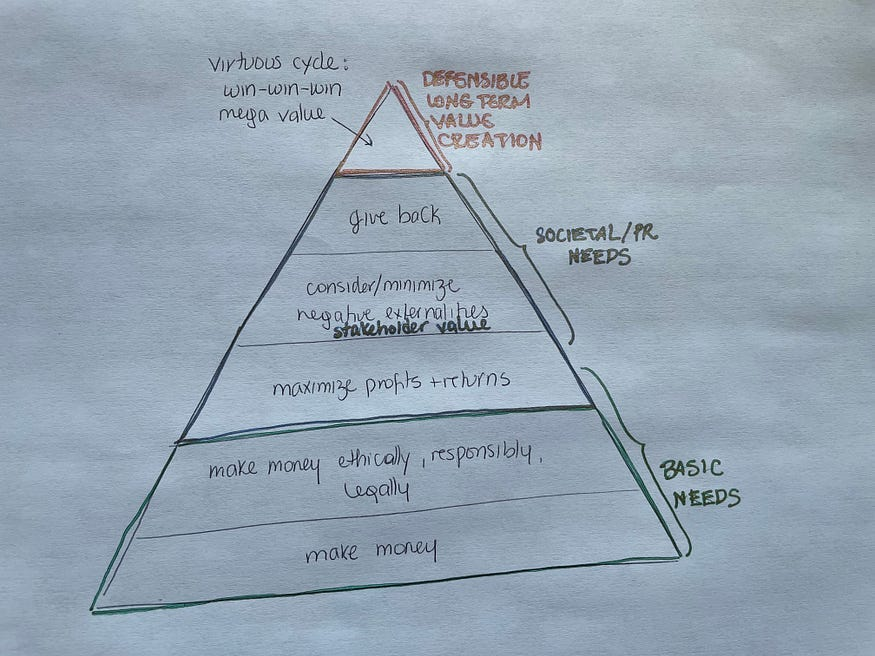 virtuous cycle:
win-win-win
mega value
DEFENSIBLE
LONG TERM
VALUE
CREATION
give back
SOCIETAL/PR
NEEDS
consider/minimize
negative externalities
stakeholder value
maximize profits + returns
make money ethically, responsibly,
legally
BASIC
NEEDS
make money